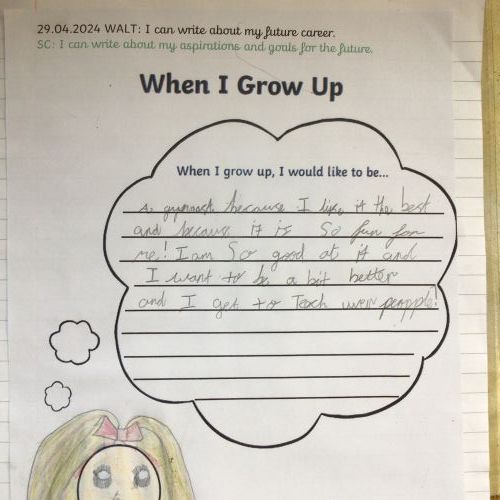 29.04.2024 WALT: I can write about my future career.
SC: I can write about my aspirations and goals for the future.
When I Grow Up
When I grow up, I would like to be...
a gymnast because I like it the best
and because it is So fun for
me! I am So good at it and
I want to be a bit better
and I get to Teach peapple!